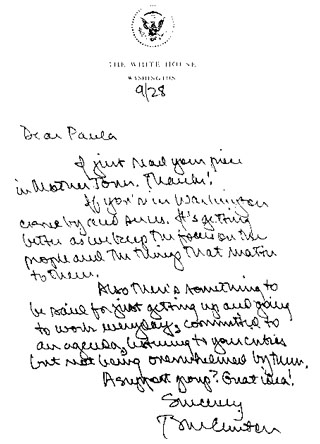 THE WHITE HOUSE
WASHINGTON
9/28
Dear Paula
I just read your piece
in Mother Jones. Thanks!
If you're in Washington
come by and see us. It's getting
better as we keep the focus on the
people and the things that matter
to them.
Also there's something to
be said for just getting up and going
to work everyday, committed to
an agenda, listening to your critics
but not being overwhelmed by them.
A support group? Great idea!
Sincerely
Bill Clinton